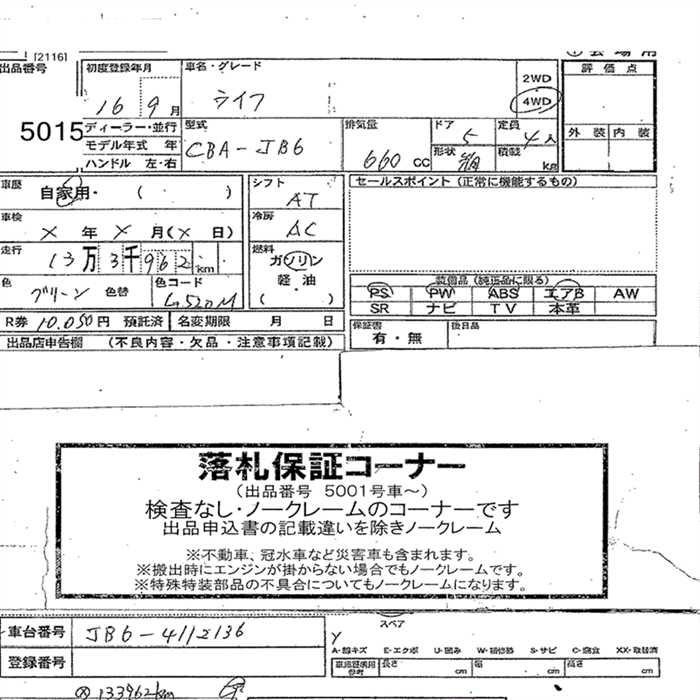 [2116]
出品番号
5015
初度登録年月
16 9月
車名・グレード
ライフ
2WD
4WD
評価点
外装 内装
ディーラー・並行
モデル年式 年
ハンドル 左・右
型式
CBA-JB6
排気量
660 CC
ドア
5
定員
4人
形状
積載
kg
車歴
自家用・ ( )
シフト
AT
セールスポイント (正常に機能するもの)
車検
X 年 X 月(X 日)
冷房
AC
走行
13万3千962km
燃料
ガソリン
軽油
( )
色
グリーン 色替
色コード
G520M
装備品 (純正品に限る)
PS PW ABS エアB AW
SR ナビ TV 本革
R券 10.050円 預託済 名変期限 月 日
保証書
有・無
後日品
出品店申告欄 (不良内容・欠品・注意事項記載)
落札保証コーナー
(出品番号 5001号車～)
検査なし・ノークレームのコーナーです
出品申込書の記載違いを除きノークレーム
※不動車、冠水車など災害車も含まれます。
※搬出時にエンジンが掛からない場合でもノークレームです。
※特殊特装部品の不具合についてもノークレームになります。
車台番号 JB6-4112136
スペア
Y
登録番号
A-線キズ E-エクボ U-凹み W-補修跡 S-サビ C-腐食 XX-取替済
長さ cm 幅 cm 高さ cm
133962km